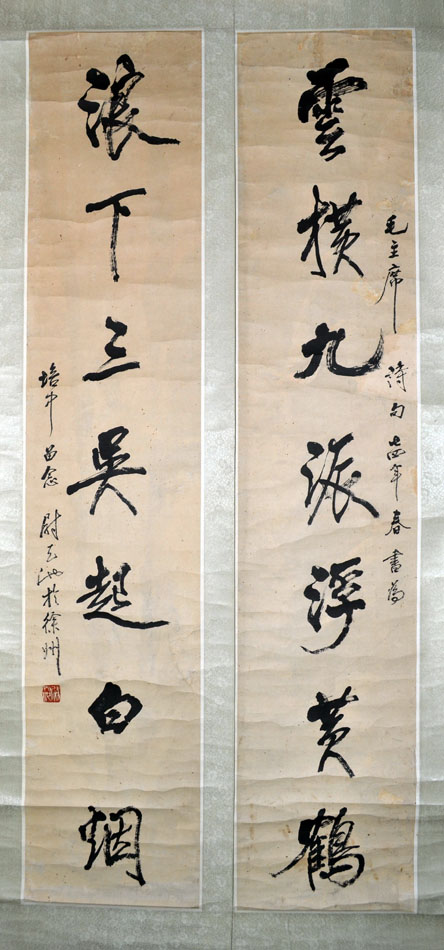 雲橫九派浮黃鶴
毛主席詩句七四年春書為
浪下三吳起白烟
培中留念尉天池於徐州